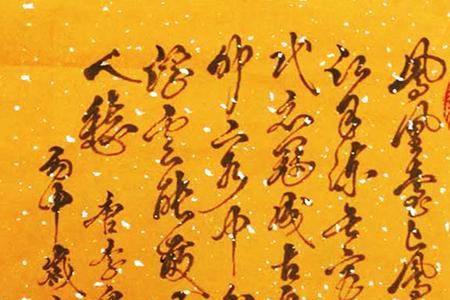 鳳凰臺上鳳
江自流吳宮
代衣冠成古
外二水中分
浮雲能蔽
人愁 唐李
丙申歲